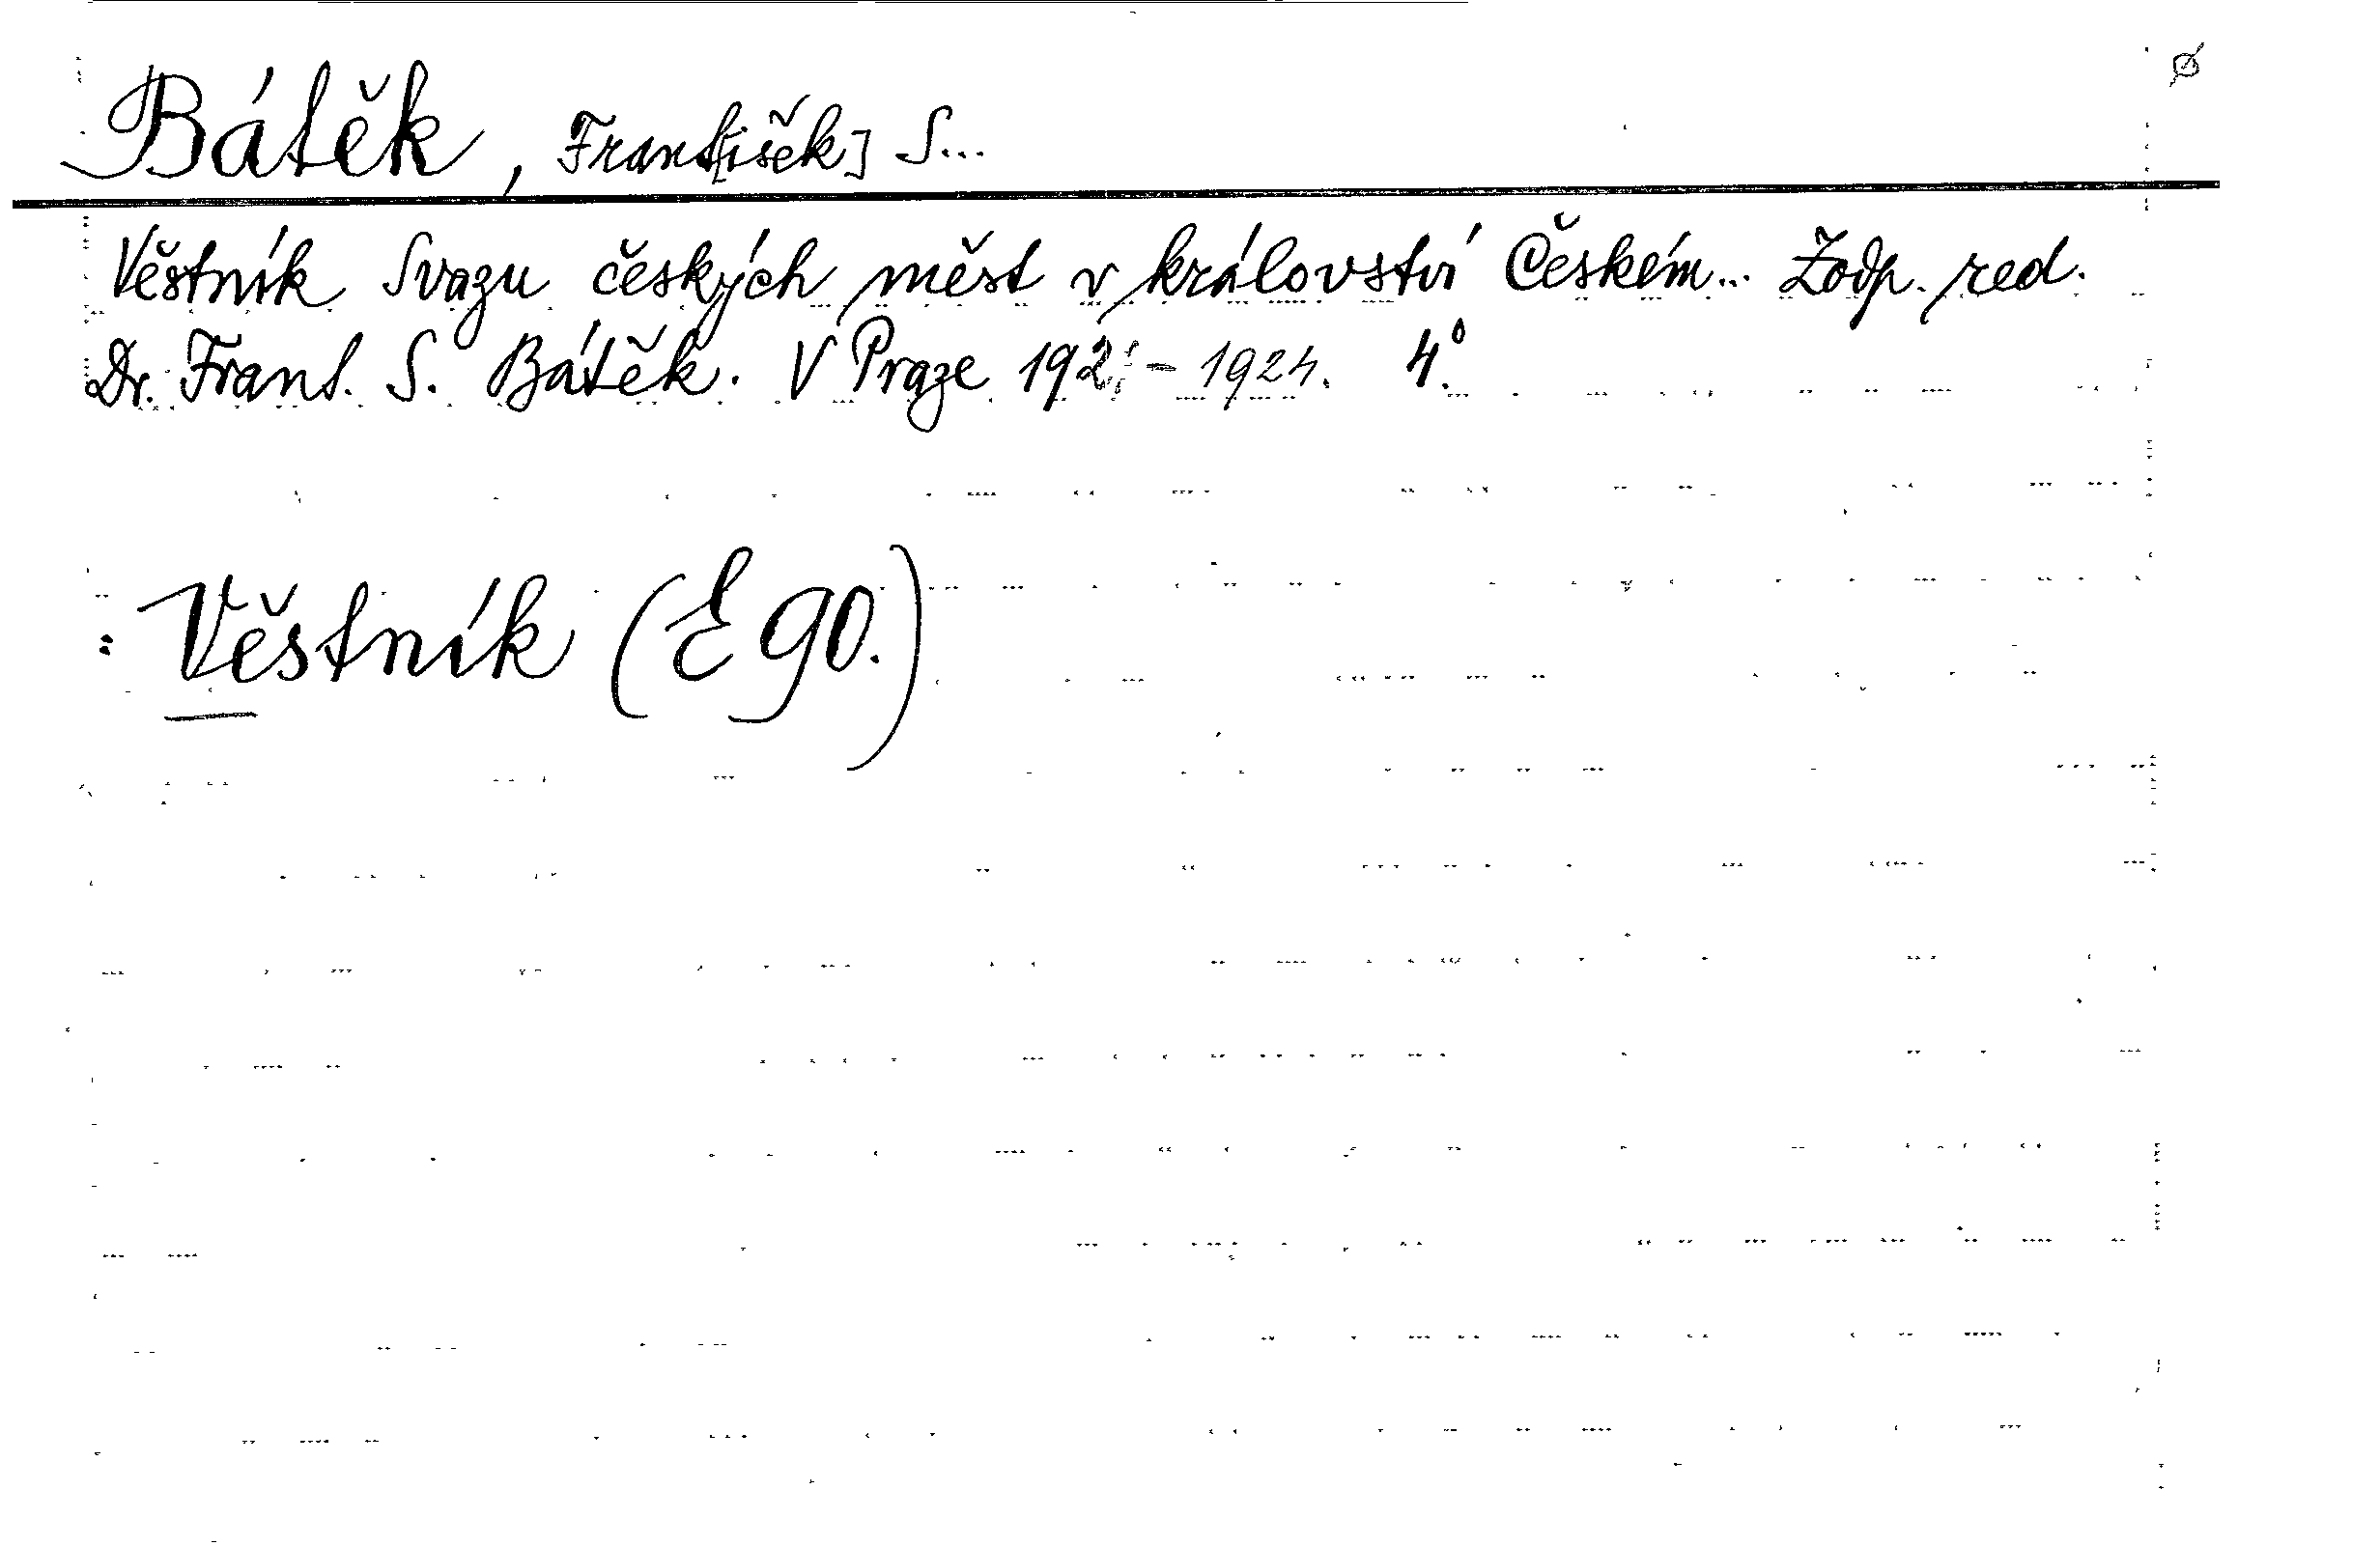 Bátěk, Frant[išek] S...
Věstník Svazu českých měst v království Českém... Zodp. red.
Dr. Frant. S. Bátěk. V Praze - 1924. 4°.
: Věstník (E 90.)